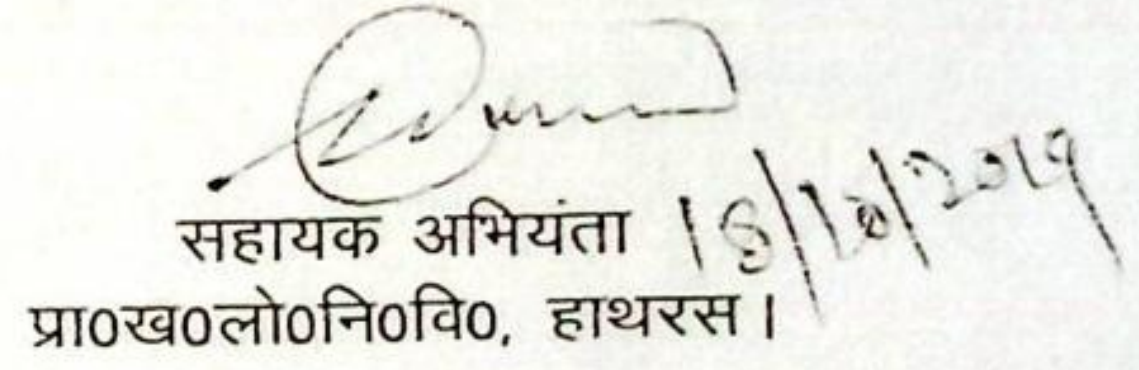 सहायक अभियंता 18/10/2019
प्रा0ख0लो0नि0वि0, हाथरस।